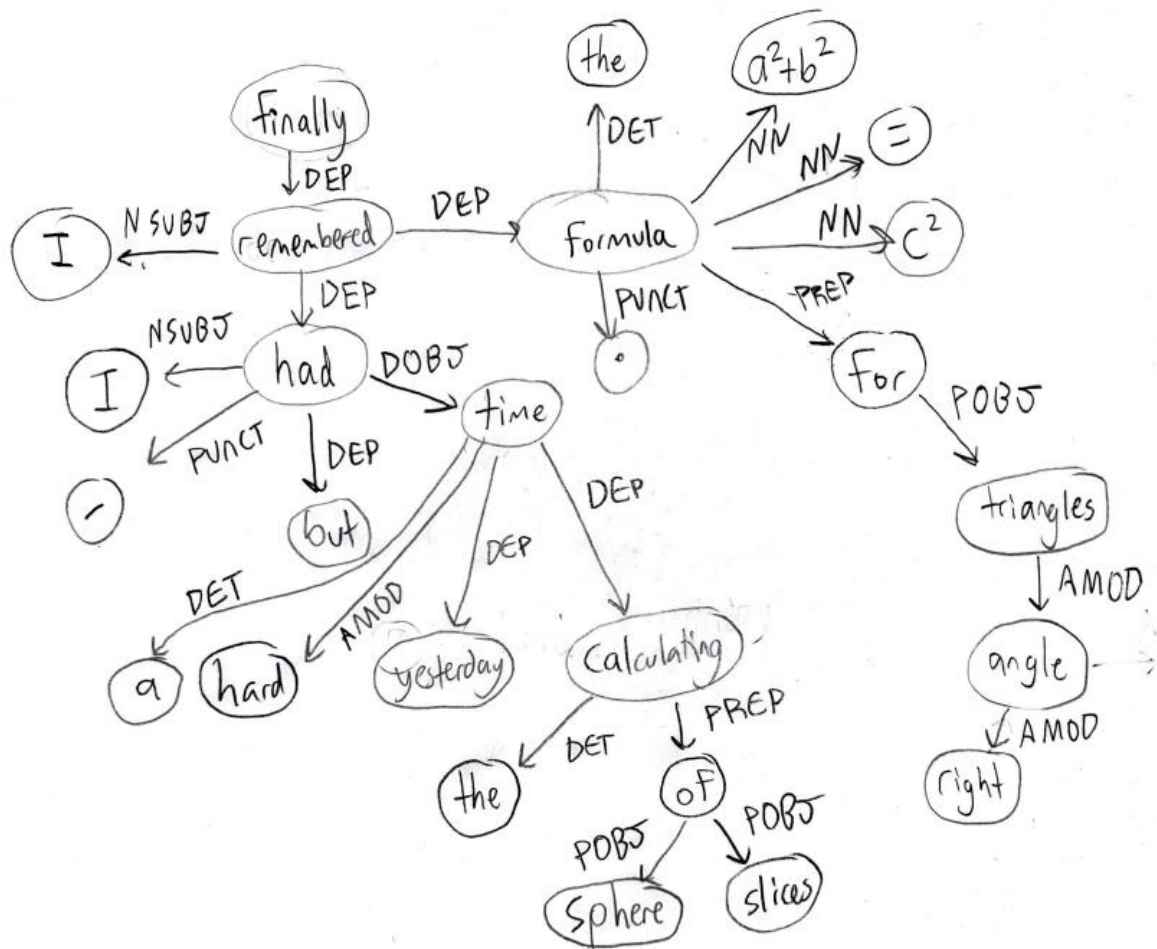 the
a²+b²
finally
DET
NN
=
DEP
NN
NSUBJ
DEP
I
remembered
formula
NN
c²
DEP
PUNCT
PREP
NSUBJ
.
I
had
DOBJ
for
time
POBJ
PUNCT
DEP
DEP
-
but
triangles
DEP
DET
AMOD
AMOD
a
hard
yesterday
calculating
angle
PREP
AMOD
DET
the
of
right
POBJ
POBJ
sphere
slices